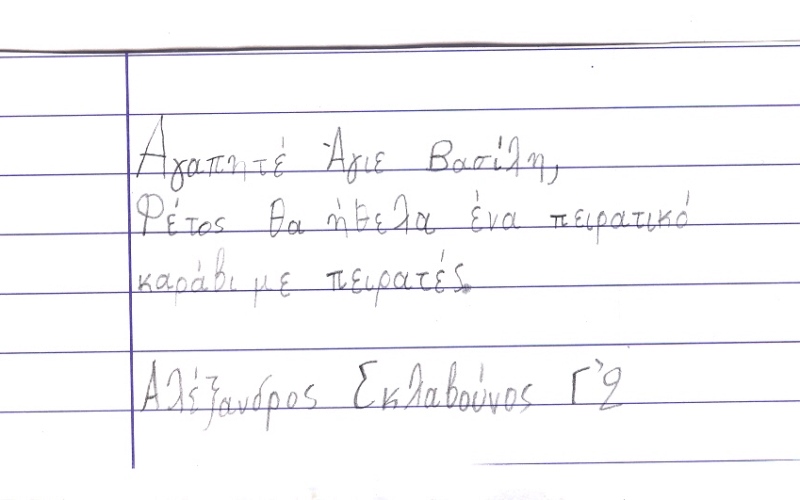 Αγαπητέ Άγιε Βασίλη,
Φέτος θα ήθελα ένα πειρατικό
καράβι με πειρατές.
Αλέξανδρος Σκλαβούνος Γ'2